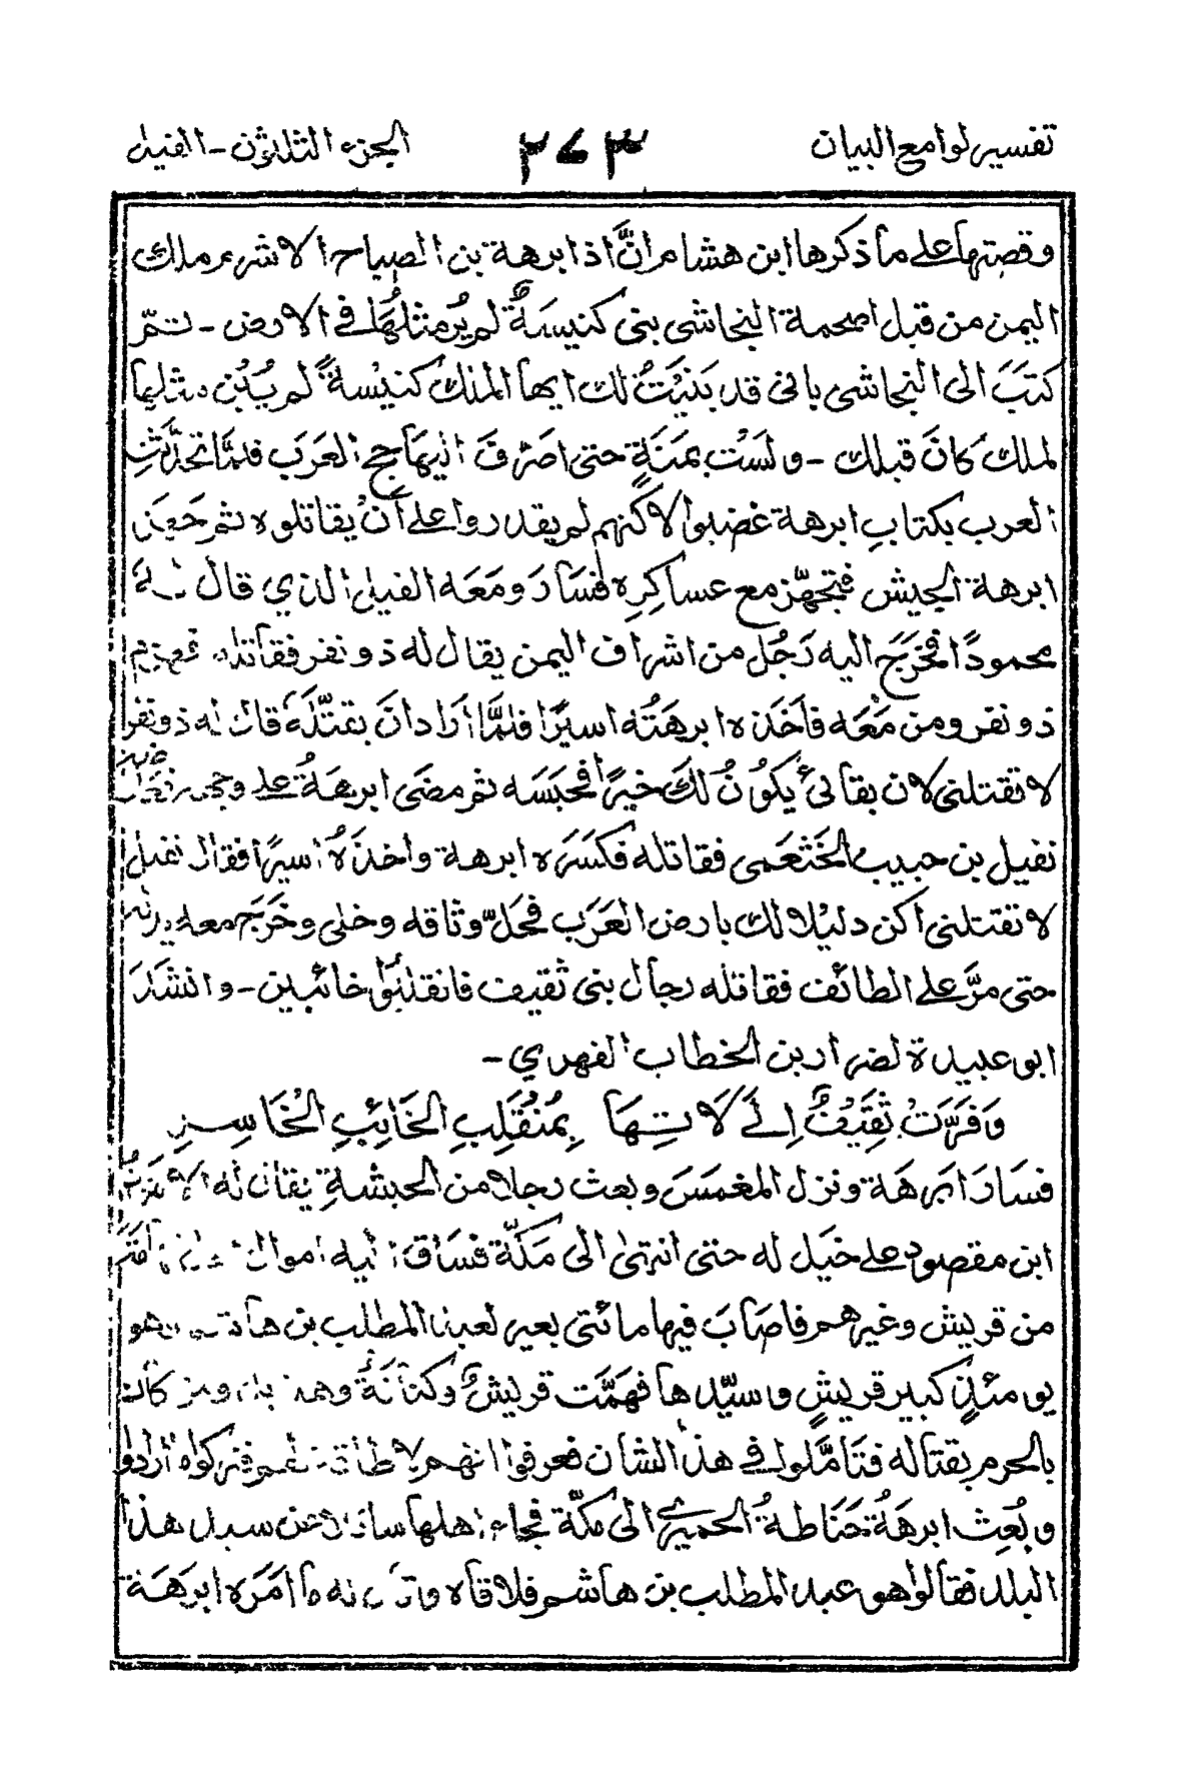 تفسير لوامع البيان ٣٧٣ الجزء الثلاثون - الفيل
وقصتها على ما ذكرها ابن هشام انَّ اذا ابرهة بن الصباح الاشرم ملك
اليمن من قبل اصحمة النجاشى بنى كنيسَةٌ لم يُر مثلُها فى الارض - ثمّ
كتَبَ الى النجاشى بانى قد بَنَيْتُ لك ايها الملكُ كنيْسةً لم يُبْن مثلها
لملك كانَ قبلك - ولسْت بمَنَةٍ حتى اصْرِفَ اليهَا حج العَرَب فلمَّا تحدَّثتِ
العرب بكتابِ ابرهة غضبوا لاكنهم لم يقدروا على أنْ يقاتلوه ثم جَعَن
ابرهة الجيش فتجهّز مع عساكِرِه فسَارَ ومَعَه الفيل الذي قال له
محمودًا فخرَجَ اليه رَجُل من اشراف اليمن يقال له ذو نفر فقاتله فهزم
ذو نفر ومن مَعْه فاَخَذه ابرهَتُه اسيرًا فلمَّا اَرَادانَ بقتّلَهُ قال له ذو نفر
لا تقتلنى لان بقائى يكَوُنُ لكَ خيرًا فحبَسَه ثم مضَى ابرهَةُ على وجهه
نفيل بن حبيب الخَثعَمى فقاتله فكسَرَه ابرهة واخذَهُ اسيرًا فقال نفيل
لا تقتلنى اكن دليْلا لك بارض العَرَب فحَلّ وثاقه وخلى وخَرَج معه
حتى مَرَّ على الطائف فقاتله رجال بنى ثقيف فانقلبُوا خائبين - وانشَدَ
ابو عبيدة لضرار بن الخطاب الفهري -
وَفَرَّتْ ثَقِيْفٌ اِلَى لَاتِهَا بِمُنْقَلِبِ الخَائِبِ الْخَاسِرِ
فسَارَ ابَرهَة ونزل المغمسَ وبعث رجلا من الحبشةِ يقال له
ابن مقصود على خيَل له حتى انتهىٰ الى مَكّة فسَاقَ اليه اموال
من قريش وغيرهم فاصَابَ فيها مائتى بعير لعبد المطلب بن هاشم وهو
يومئذٍ كبير قريشٍ وسيّدها فهَمَّت قريشٌ وكنَانَةُ وهذيل ومن كان
بالحرم بقتاله فتَأمَّلوا فى هذا الشان فعرفوا انهم لا طاقة لهم فتركوا
وبُعِث ابرهَةُ حَنَاطةُ الحميرى الى مكّة فجاء اهلها سائلا عن سيد هذا
البلد فقالوا هو عبد المطلب بن هاشم فلاقاه وقال له ما امَرَه ابرَهَة